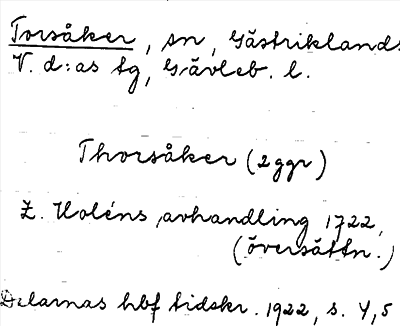 Torsåker, sn, Gästriklands
V. d:as tg, Gävleb. l.
Thorsåker (2 ggr)
Z. Holéns avhandling 1722,
(översättn.)
Dalarnas hbf tidskr. 1922, s. 4, 5